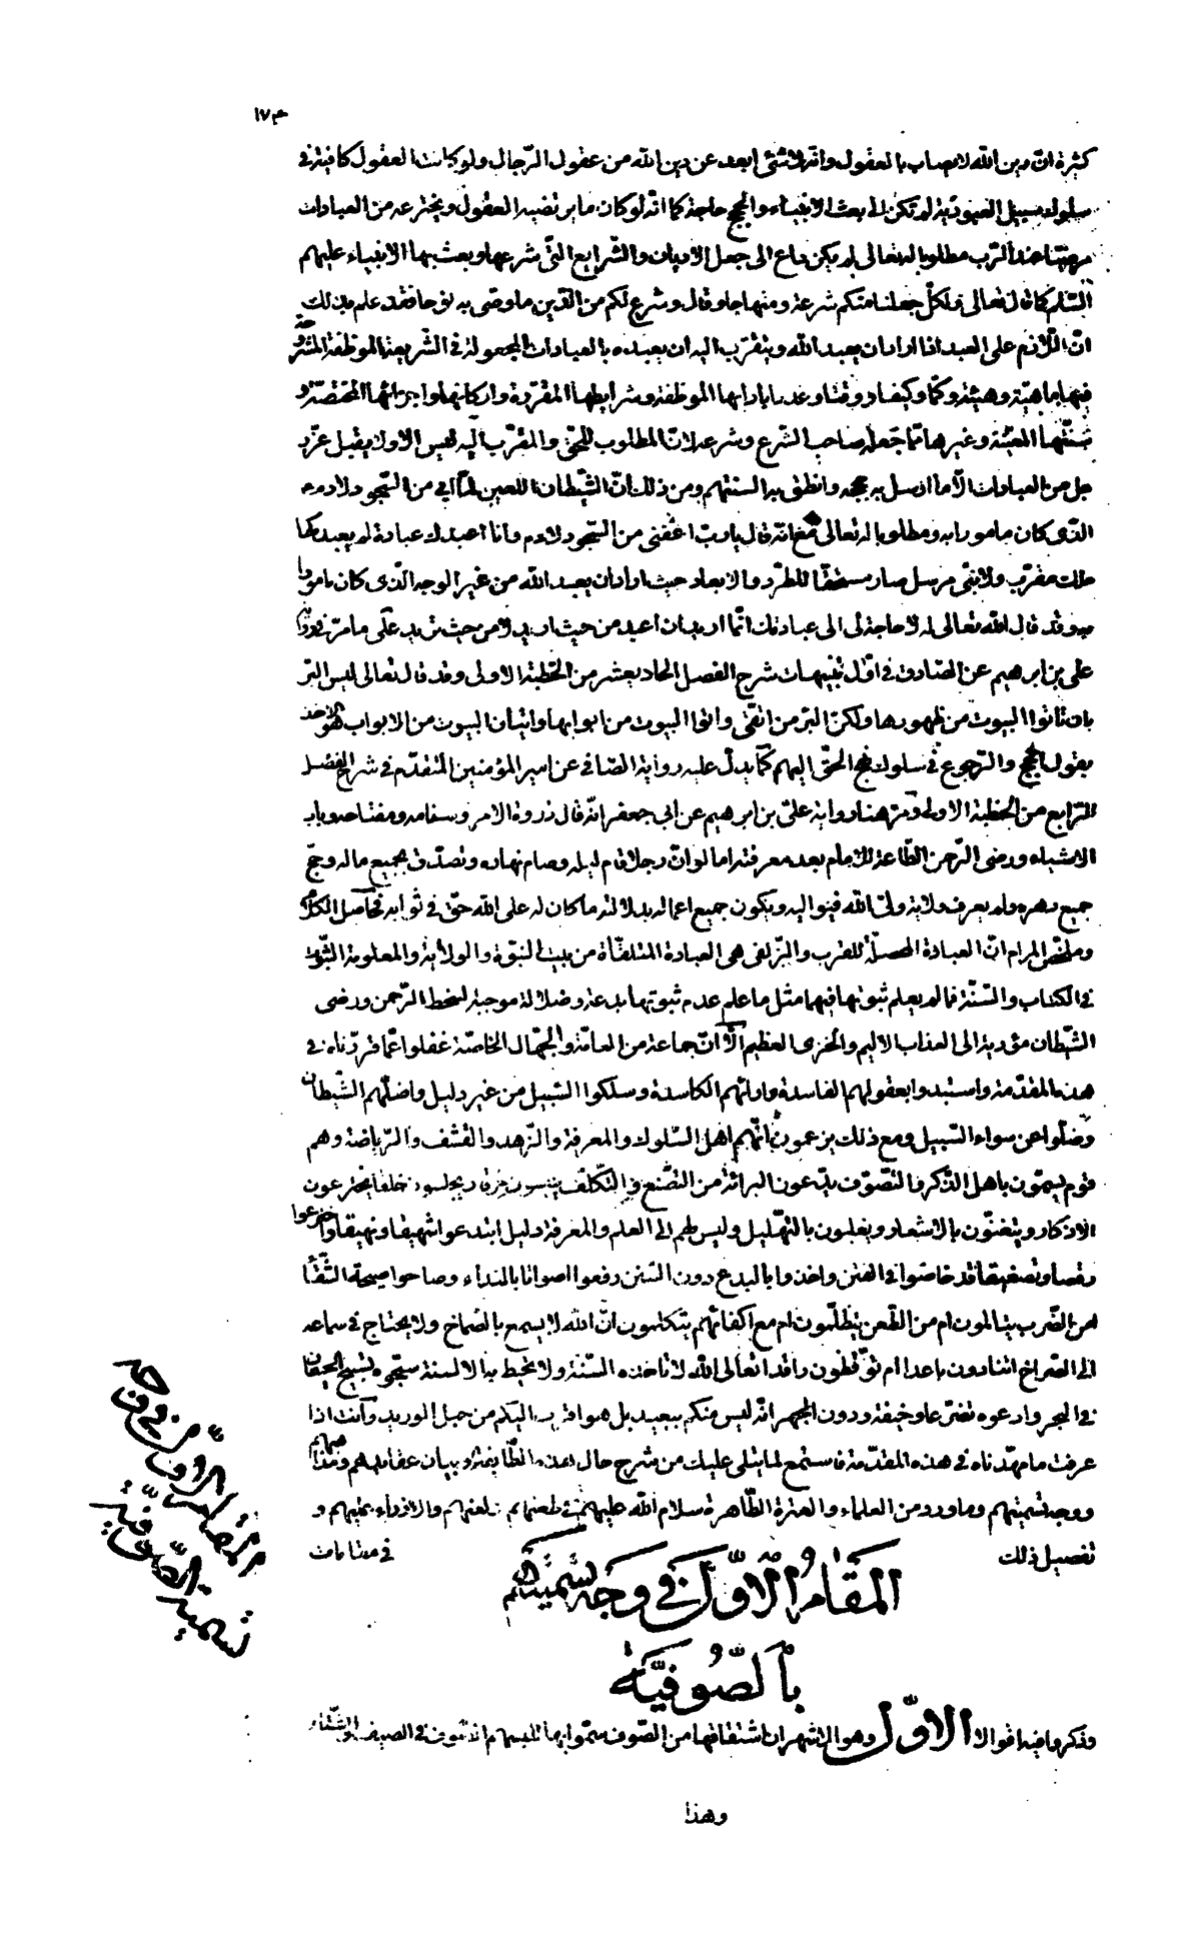 كثيرة انّ دين الله لا يصاب بالعقول وانّه لا شئ ابعد عن دين الله من عقول الرّجال ولو كانت العقول كافية في
سلوك سبيل العبوديّة لم تكن الى بعث الانبياء والحجج حاجة كما انّه لو كان ما يرتضيه العقول ويخترعه من العبادات
مرضيّا عند الرّب مطلوبا له تعالى لم يكن داع الى جعل الاديان والشّرايع الّتى شرعها وبعث بها الانبياء عليهم
السّلام كما قال تعالى ولكلّ جعلنا منكم شرعة ومنهاجا وقال وشرع لكم من الدّين ما وصّى به نوحا فقد علم بذلك
انّ اللّازم على العبد اذا اراد ان يعبد الله ويتقرّب اليه ان يعبده بالعبادات المجعولة في الشّريعة الموظّفة
فيها ماهيّة وهيئة وكمّا وكيفا ووقتا وعددا بادابها الموظّفة وشرايطها المقرّرة واركانها واجزائها المختصّة و
سننها المعيّنة وغيرها ممّا جعله صاحب الشّرع وشرعه لانّ المطلوب للحقّ والمقرّب اليه ليس الا ولا يقبل عزّ و
جل من العبادات الّا ما ارسل به حججه وانطق به السنتهم ومن ذلك انّ الشّيطان اللعين لمّا ابى من السّجود لادم
الذّى كان مامورا به ومطلوبا له تعالى مع انّه قال يا ربّ اعفنى من السّجود لادم وانا اعبدك عبادة لم يعبدكها
ملك مقرّب ولا نبىّ مرسل صار مستحقّا للطّرد والابعاد حيث اراد ان يعبد الله من غير الوجه الّذى كان مامورا
به وقد قال الله تعالى له لا حاجة لى الى عبادتك انّما اريد ان اعبد من حيث اريد لا من حيث تريد على ما مرّ في رواية
على بن ابرهيم عن الصّادق في اوّل تنبيهات شرح الفصل الحاديعشر من الخطبة الاولى وقد قال تعالى ليس البّر
بان تاتوا البيوت من ظهورها ولكنّ البّر من اتّقى واتوا البيوت من ابوابها واتيان البيوت من الابواب هو الاخذ
بقول الحجج والرّجوع في سلوك نهج الحقّ اليهم كما يدلّ عليه رواية الصّافى عن امير المؤمنين المتقدّم في شرح الفصل
الرّابع من الخطبة الاولى ومرّ هنا رواية علىّ بن ابرهيم عن ابى جعفر انّه قال ذروة الامر وسنامه ومفتاحه وباب
الاشياء ورضى الرّحمن الطّاعة للامام بعد معرفته اما لو انّ رجلا قام ليله وصام نهاره وتصدّق بجميع ماله وحجّ
جميع دهره ولم يعرف ولاية ولىّ الله فيواليه ويكون جميع اعماله بدلالته ما كان له على الله حقّ في ثوابه فحاصل الكلام
وملخّص المرام انّ العبادة المحصّلة للقرب والزّلفى هى العبادة المتلقّاة من بيت النّبوّة والولاية والمعلومة الثّبوت
في الكتاب والسّنّة فما لم يعلم ثبوتها فيهما مثل ما علم عدم ثبوتها بدعة وضلالة موجبة لسخط الرّحمن ورضى
الشّيطان مؤدية الى العذاب الاليم والخزى العظيم الّا انّ جماعة من العامّة والجهّال الخاصّة غفلوا عمّا قرّرناه في
هذه المقدّمة واستبدوا بعقولهم الفاسدة وارائهم الكاسدة وسلكوا السّبيل من غير دليل واضلّهم الشّيطان
وضلّوا عن سواء السّبيل ومع ذلك يزعمون انّهم اهل السّلوك والمعرفة والزّهد والتقشف والرّياضة وهم
قوم يسمّون باهل الذّكر والتصّوّف يدّعون البرائة من التّصنّع والتّكلّف يلبسون خرقا ويجلسون حلقا يخترعون
الاذكار ويتغنّون بالاشعار ويعلنون بالتهّليل وليس لهم الى العلم والمعرفة دليل ابتدعوا شهيقا ونهيقا واخترعوا
رقصا وتصفيقا قد خاضوا في الفتن واخذوا بالبدع دون السّنن رفعوا اصواتا بالنداء وصاحوا صيحة الشّقاء
امن الضّرب يتالمون ام من الطّعن يتظلّمون ام مع اكفائهم يتكلمون انّ الله لا يسمع بالصّماخ ولا يحتاج في سماعه
الى الصّراخ اتنادون باعدا ام توقظون راقدا تعالى الله لا تاخذه السّنة ولا تحيط به الالسنة سبّحوه تسبيح الحيتان
في البحر وادعوه تضرّعا وخيفة ودون الجهر انّه ليس منكم ببعيد بل هو اقرب اليكم من حبل الوريد وانت اذا
عرفت ما مهّدناه في هذه المقدّمة فاستمع لما يتلى عليك من شرح حال هذه الطّايفة وبيان عقايدهم ومذاهبهم
ووجه تسميتهم وما ورد من العلماء والعترة الطّاهرة سلام الله عليهم في طعنهم ولعنهم والازراء عليهم و
تفصيل ذلك في مقامات
المقام الاوّل في وجه تسميتهم
بالصّوفيّة
وذكروا فيه اقوالا الاوّل وهو الاشهر ان اشتقاقها من الصّوف سمّوا بها للبسهم الصّوف في الصيف والشّتاء
وهذا
المقام الاوّل في وجه
تسمية الصّوفيّة